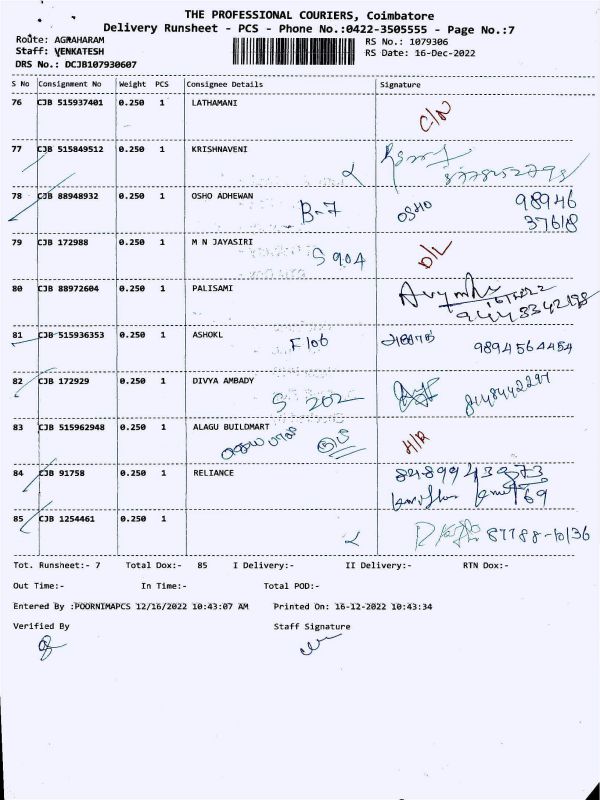 THE PROFESSIONAL COURIERS, Coimbatore
Delivery Runsheet - PCS - Phone No.:0422-3505555 - Page No.:7
Route: AGRAHARAM
RS No.: 1079306
Staff: VENKATESH
RS Date: 16-Dec-2022
DRS No.: DCJB107930607
S No Consignment No Weight PCS Consignee Details Signature
76 CJB 515937401 0.250 1 LATHAMANI C/N
77 CJB 515849512 0.250 1 KRISHNAVENI
78 CJB 88948932 0.250 1 OSHO ADHEWAN B-7 OSHO 98946
37618
79 CJB 172988 0.250 1 M N JAYASIRI S 904 D/L
80 CJB 88972604 0.250 1 PALISAMI
9443342198
81 CJB 515936353 0.250 1 ASHOKL F106 9894564454
82 CJB 172929 0.250 1 DIVYA AMBADY S 202 8148442297
83 CJB 515962948 0.250 1 ALAGU BUILDMART H/R
84 CJB 91758 0.250 1 RELIANCE
69
85 CJB 1254461 0.250 1 87788-10136
Tot. Runsheet:- 7 Total Dox:- 85 I Delivery:- II Delivery:- RTN Dox:-
Out Time:- In Time:- Total POD:-
Entered By :POORNIMAPCS 12/16/2022 10:43:07 AM Printed On: 16-12-2022 10:43:34
Verified By Staff Signature